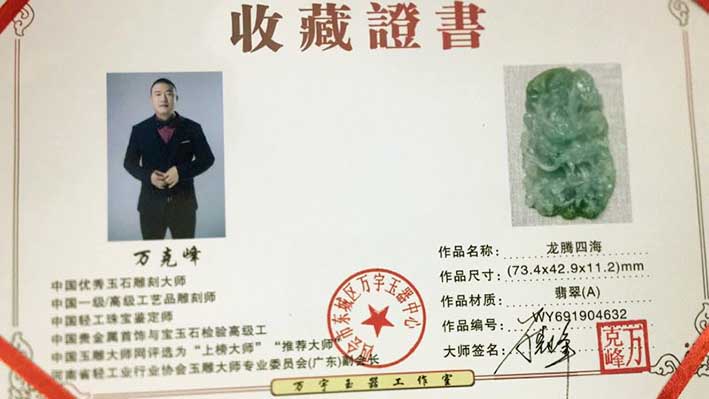 收藏證書
万克峰
中国优秀玉石雕刻大师
中国一级/高级工艺品雕刻师
中国轻工珠宝鉴定师
中国贵金属首饰与宝玉石检验高级工
中国玉雕大师网评选为“上榜大师”“推荐大师”
河南省轻工业行业协会玉雕大师专业委员会(广东)副会长
作品名称: 龙腾四海
作品尺寸: (73.4x42.9x11.2)mm
作品材质: 翡翠(A)
作品编号: WY691904632
大师签名: 万克峰
万克峰
市东城区万宇玉器中心
万宇玉器工作室